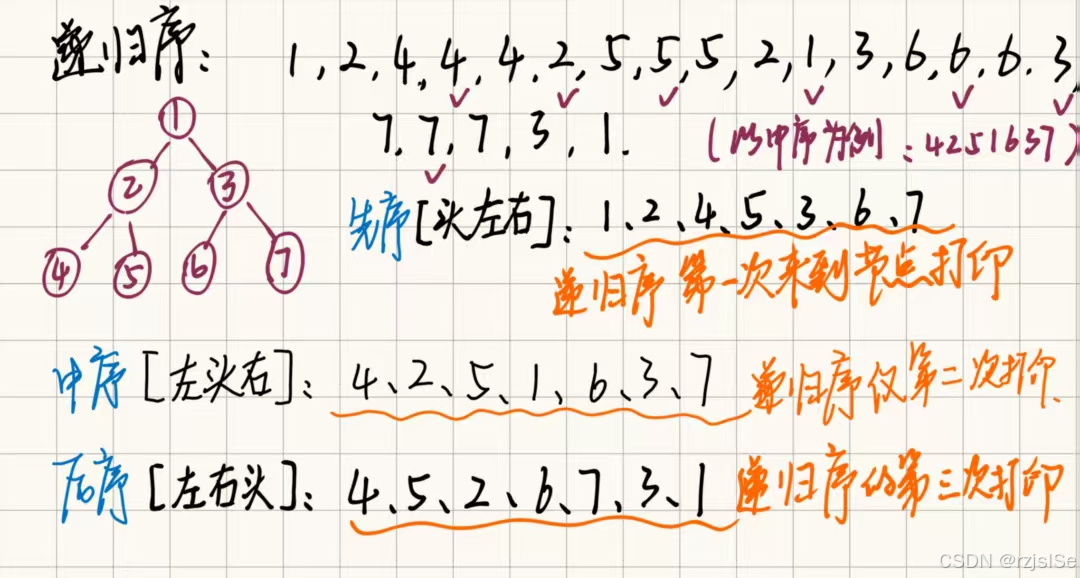 递归序: 1,2,4,4,4,2,5,5,5,2,1,3,6,6,6.3,
7,7,7,3,1.
(以中序为例:4251637)
1
2 3
4 5 6 7
先序[头左右]: 1、2、4、5、3、6、7
递归序 第一次来到节点打印
中序[左头右]: 4、2、5、1、6、3、7 递归序仅第二次打印.
后序[左右头]: 4、5、2、6、7、3、1 递归序的第三次打印
CSDN @rzjslSe